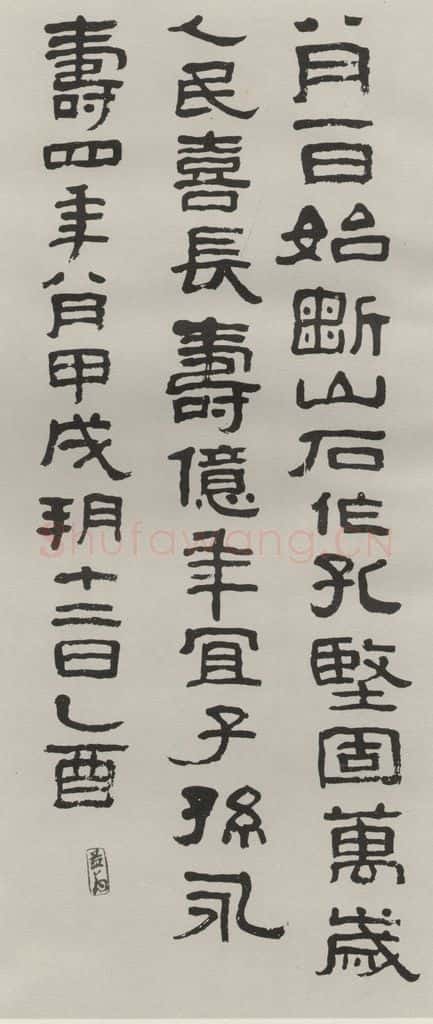 八月一日始斷山石作孔堅固萬歲
人民喜長壽億年宜子孫永
壽四年八月甲戌朔十二日乙酉
Shufawang.CN